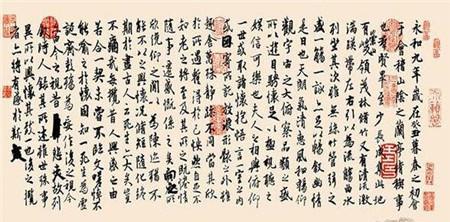 永和九年歲在癸丑暮春之初會
于會稽山陰之蘭亭脩禊事
也群賢畢至少長咸集此地
有崇山峻領茂林脩竹又有清流激
湍暎帶左右引以為流觴曲水
列坐其次雖無絲竹管弦之
盛一觴一詠亦足以暢敘幽情
是日也天朗氣清惠風和暢仰
觀宇宙之大俯察品類之盛
所以遊目騁懷足以極視聽之
娛信可樂也夫人之相與俯仰
一世或取諸懷抱悟言一室之內
或因寄所託放浪形骸之外雖
趣舍萬殊靜躁不同當其欣
於所遇暫得於己怏然自足不
知老之將至及其所之既惓情
隨事遷感慨係之矣向之所
欣俛仰之閒以為陳迹猶不
能不以之興懷況脩短隨化終
期於盡古人云死生亦大矣豈
不痛哉每攬昔人興感之由
若合一契未嘗不臨文嗟悼不
能喻之於懷固知一死生為虛
誕齊彭殤為妄作後之視今
亦由今之視昔悲夫故列
敘時人錄其所述雖世殊事
異所以興懷其致一也後之攬
者亦將有感於斯文